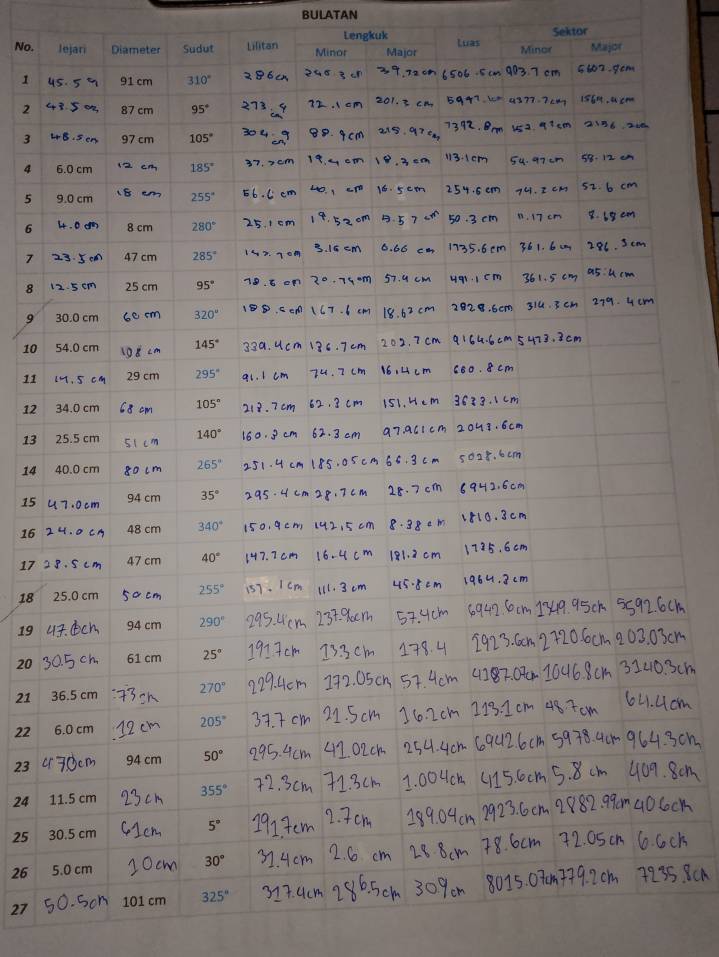 BULATAN
No. Jejari Diameter Sudut Lilitan Lengkuk Luas Sektor
Minor Major Minor Major
1 45.5 91 cm 310° 286cm 6506.5cm 903.7 cm
2 43.5 cm 87 cm 95° 273.4 cm 72.1cm 201.3 cm 1569.4cm
3 48.5cm 97 cm 105° 304.9 cm 88.9cm 215.97cm
4 6.0 cm 12 cm 185° 37.7cm 19.4cm 18.3cm 113.1cm 54.97cm 58.12 cm
5 9.0 cm 18 cm 255° 56.6 cm 40.1 cm 16.5cm 254.6cm 74.2 cm 52.6 cm
6 4.0 cm 8 cm 280° 25.1cm 19.52cm 50.3 cm 11.17cm
7 23.5cm 47 cm 285° 3.16cm 6.66 cm 1735.6cm 361.6cm 286.3cm
8 12.5cm 25 cm 95° 78.6 cm 20.74cm 57.9cm 491.1cm 361.5cm 95.4cm
9 30.0 cm 60 cm 320° 188.5cm 167.6 cm 18.62cm 2828.6cm 314.3cm 279.4cm
10 54.0 cm 108 cm 145° 339.4cm 136.7cm 202.7cm 9164.6cm 5473.3cm
11 14.5cm 29 cm 295° 91.1 cm 74.7cm 16.4cm 660.8cm
12 34.0 cm 68 cm 105° 213.7cm 62.3cm 151.4cm 3633.1cm
13 25.5 cm 51 cm 140° 160.3cm 62.3cm 97.961cm 2043.6cm
14 40.0 cm 80 cm 265° 251.4cm 185.05cm 66.3cm 5028.6cm
15 47.0cm 94 cm 35° 295.4cm 28.7cm 28.7cm 6942.6cm
16 24.0cm 48 cm 340° 150.9cm 142.5cm 8.38cm 1810.3cm
17 28.5cm 47 cm 40° 147.7cm 16.4cm 181.3cm 1735.6cm
18 25.0 cm 50cm 255° 157.1cm 111.3cm 45.8cm 1964.3cm
19 47.0cm 94 cm 290° 295.4cm 237.90cm 57.4cm 6942.6cm 1349.95cm 5592.6cm
20 30.5cm 61 cm 25° 191.7cm 13.3cm 178.4 2923.6cm 2720.6cm 203.03cm
21 36.5 cm 73cm 270° 229.4cm 172.05cm 57.4cm 4187.07cm 1046.8cm 3140.3cm
22 6.0 cm 12cm 205° 37.7cm 21.5cm 16.2cm 113.1cm 48.7cm 64.4cm
23 47.0cm 94 cm 50° 295.4cm 41.02cm 254.4cm 6942.6cm 5978.4cm 964.3cm
24 11.5 cm 23cm 355° 72.3cm 71.3cm 1.004cm 415.6cm 5.8cm 409.8cm
25 30.5 cm 61cm 5° 191.7cm 2.7cm 189.04cm 2923.6cm 2882.99cm 40.6cm
26 5.0 cm 10cm 30° 31.4cm 2.6 cm 28.8cm 78.6cm 72.05cm 6.6cm
27 50.5cm 101 cm 325° 317.4cm 286.5cm 309cm 8015.07cm 779.2cm 7235.8cm